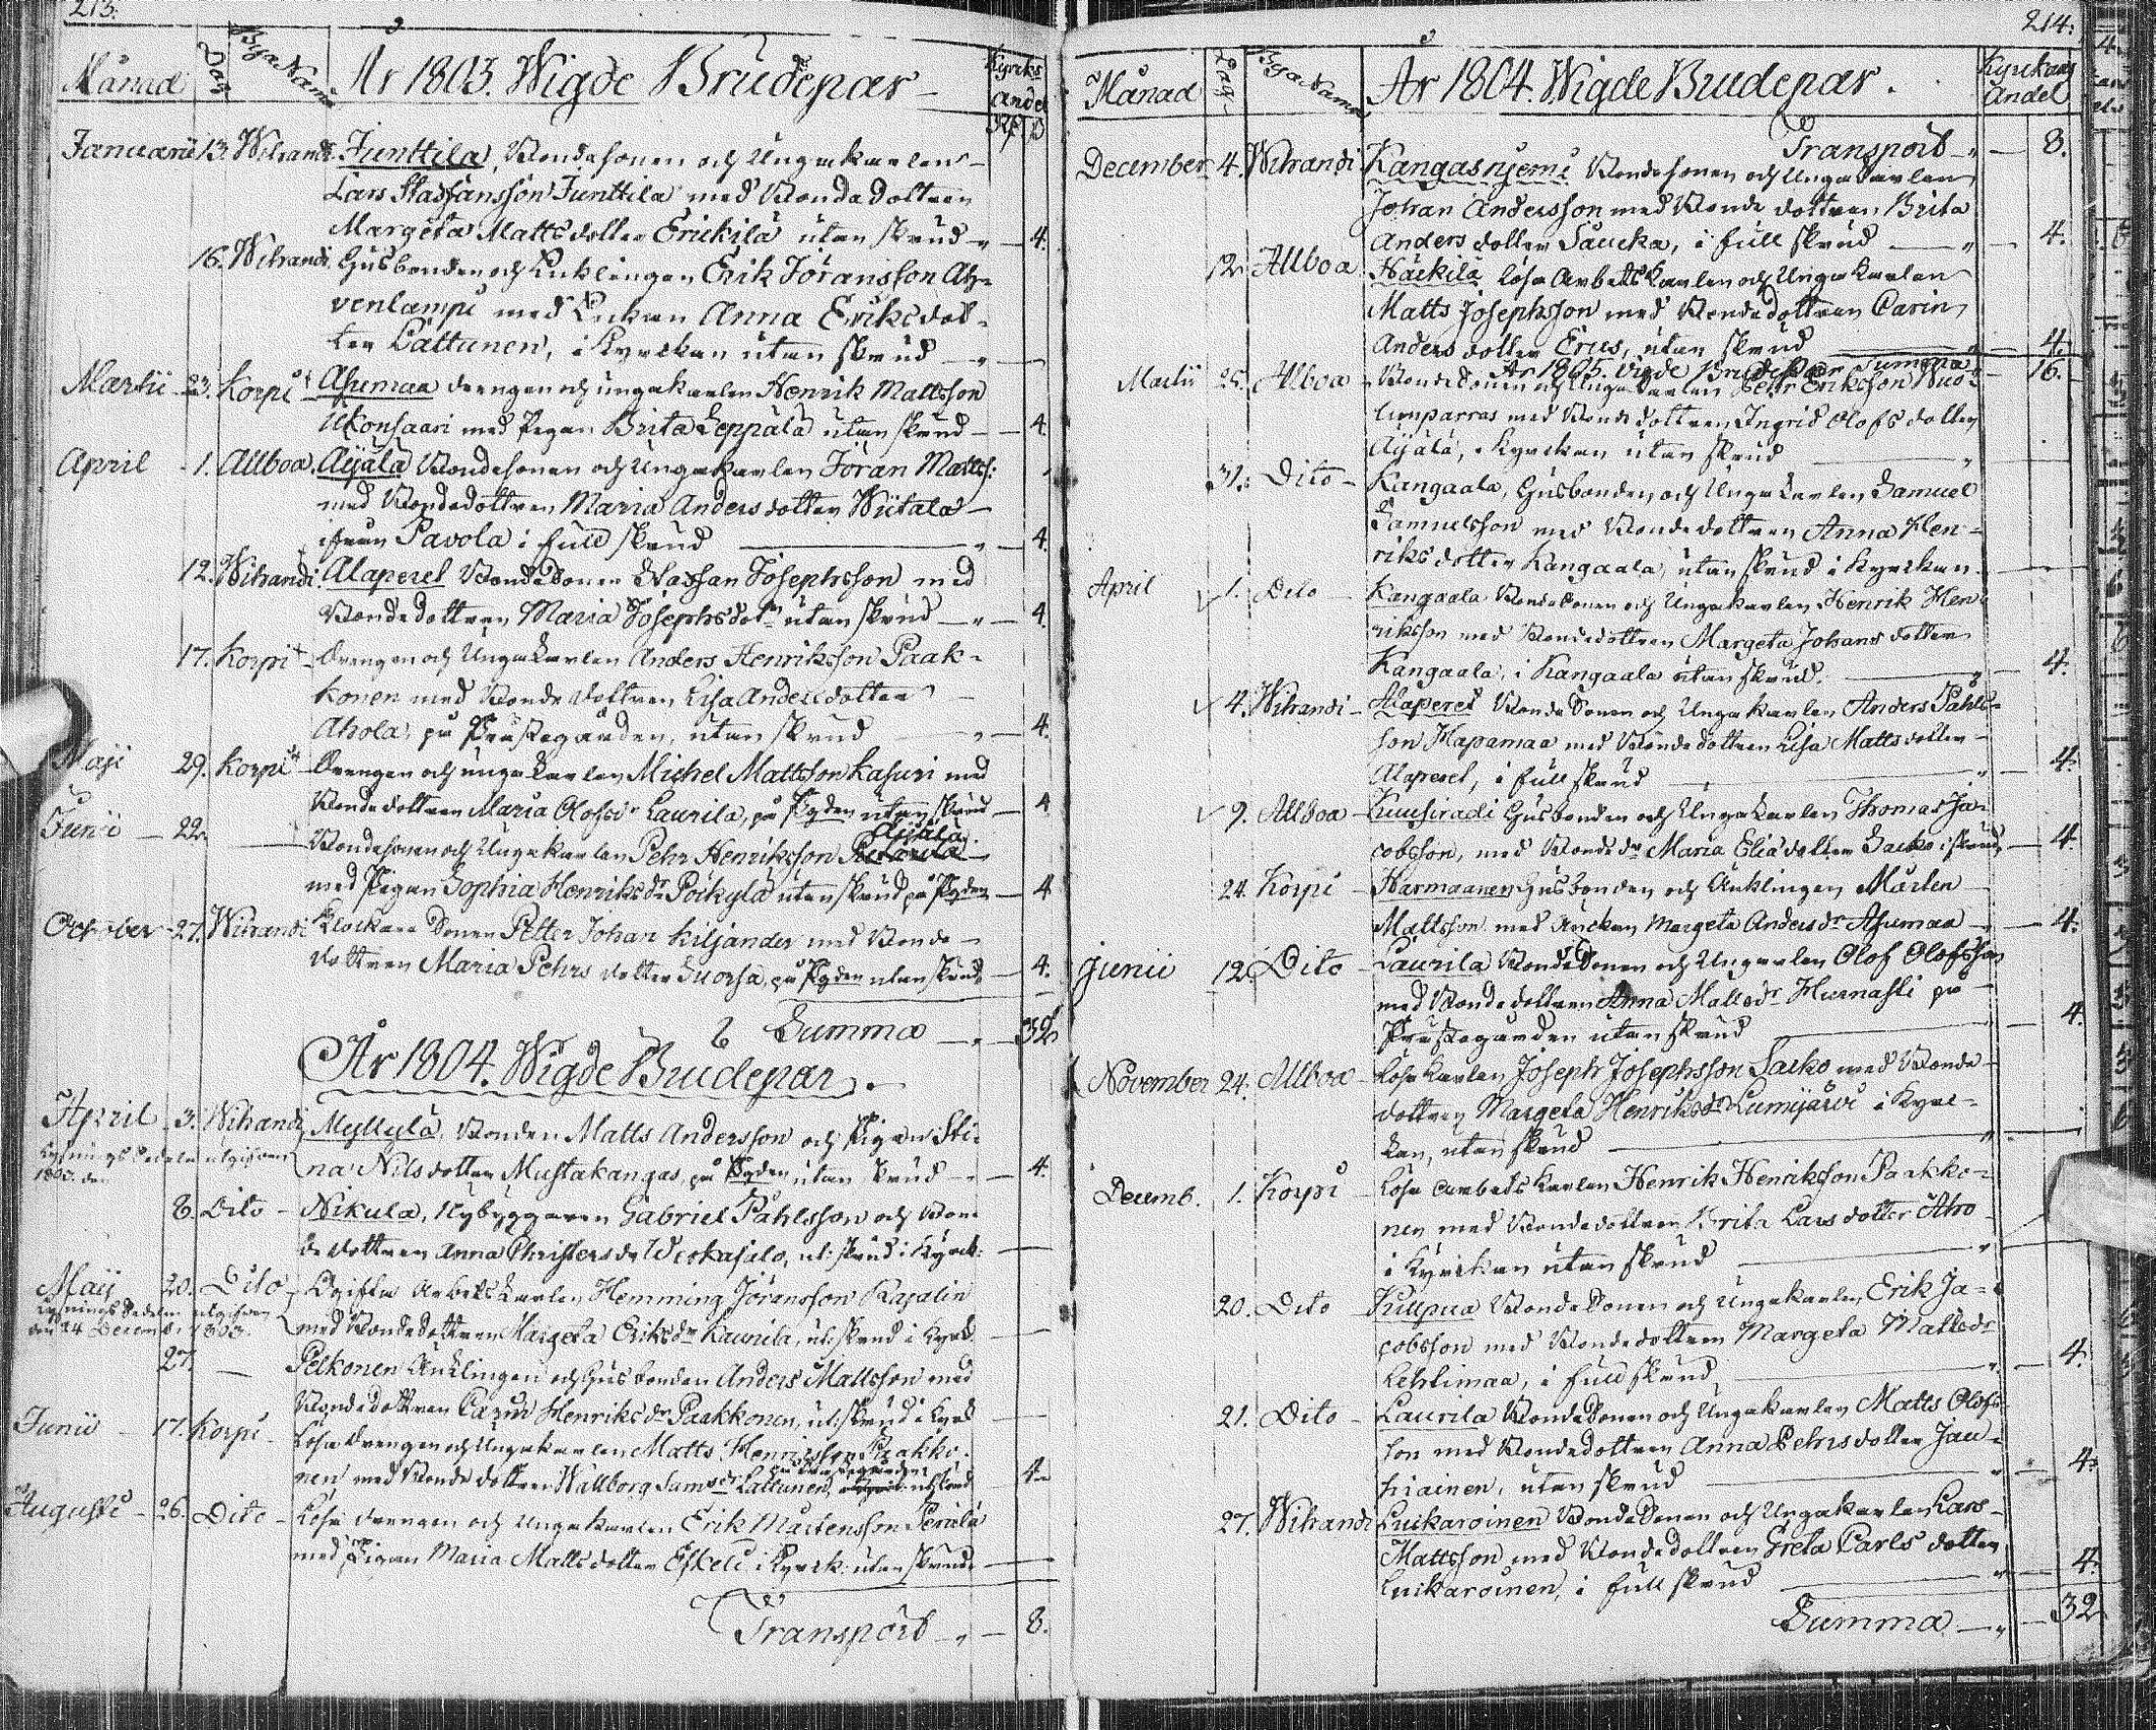 213.
Månad Dag Bya Namn År 1803. Wigde Brudepar Kyrcks andel
Januarii 13. Wihandi Junttila, Bondesonen och Ungakarlen
Lars Staffansson Junttila med Bondedottren
Margeta Mattsdotter Erickilä utan skrud 4.
16. Wihandi. Husbonden och Enklingen Erik Jöransson Ah-
venlampi med Enkan Anna Eriksdot-
ter Lättunen, i Kyrckan utan skrud
Martii 23. Korpi Asumaa drengen och ungakarlen Henrik Mattsson
Ukonsaari med Pigan Brita Leppälä utan skrud 4.
April 1. Allboa. Äijälä Bondesonen och Ungakarlen Jöran Matts:
med Bondedottren Maria Andersdotter Wiitala
ifrån Pavola i full skrud 4.
12. Wihandi. Alaperet Bondesonen Staffan Josephsson med
Bondedottren Maria Josephsdotr utan skrud 4.
17. Korpi Drengen och Ungakarlen Anders Henriksson Paak-
konen med Bondedottren Lisa Andersdotter
Ahola, på Prästegården, utan skrud 4.
Maji 29. Korpi Drengen och ungakarlen Michel Mattsson Kasuri med
Bondedottren Maria Olofsdr Laurila, på Pgden utan skrud 4
Äijälä
Junii 22. Bondesonen och Ungakarlen Pehr Henriksson
med Pigan Sophia Henriksdr Pöikylä utan skrud på Pgden 4
October 27. Wihandi Klockare Sonen Petter Johan Kiljander med Bonde-
dottren Maria Pehrs dotter Suorsa, på Pgden utan skrud 4.
Summa 32
År 1804. Wigde Brudepar.
April 3. Wihandi Myllylä, Bonden Matts Andersson och Pigan Sti-
Lysnings Sedeln utgifven
1803. den
na Nilsdotter Mustakangas, på Pgden, utan skrud 4.
8. Dito Nikula, Nybyggaren Gabriel Påhlsson och Bon-
dedottren Anna Christersdr Wiskajalo, ut: skrud i Kyrck:
Maij 20. Dito Logifta Arbets Karlen Hemming Jöransson Kajalin
Lysnings Sedeln utgifven
den 24 Decemb. 1803.
med Bondedottren Margeta Eriksdr Laurila, ut: skrud i Kyrck.
27. Pelkonen Änklingen och Husbonden Anders Mattsson med
Bondedottren Carin Henriksdr Paakkonen, ut: skrud i Kyrck
Junii 17. Korpi Lösa drengen och Ungakarlen Matts Henriksson Paakko-
på Prästegården
nen, med Bondedottren Wallborg Samsdr Lättunen, ut skrud 4.
Augusti 26. Dito Lösa drengen och Ungakarlen Erik Mårtensson Perälä
med Pigan Maria Mattsdotter Eskeli i Kyrck: utan skrud
Transport 8.
214.
Månad Dag Bya Namn År 1804. Wigde Brudepar. Kyrckans Andel
Transport 8.
December 4. Wihandi Kangasnjemi Bondesonen och Ungakarlen
Johan Andersson med Bonde dottren Brita
Anders dotter Saucka, i full skrud 4.
12. Allboa Häckilä lösa Arbetskarlen och Ungakarlen
Matts Josephsson med Bondedottren Carin
Anders dotter Erus, utan skrud 4.
År 1805. Vigde Brudepar Summa 16.
Martii 25. Allboa Bondesonen och Ungakarlen Pehr Eriksson Wuo-
lunparras med Bonde dottren Ingrid Olofs dotter
Äijälä, i Kyrckan utan skrud
31. Dito Kangaala, Husbonden och Ungakarlen Samuel
Samuelsson med Bonde dottren Anna Hen-
riksdotter Kangaala, utan skrud i Kyrckan
April 1. Dito Kangaala Bondesonen och Ungakarlen Henrik Hen-
riksson med Bondedottren Margeta Johans dotter
Kangaala, i Kangaala utan skrud. 4.
4. Wihandi Alaperet Bonde Sonen och Ungakarlen Anders Påhls-
son Hapamaa med Bondedottren Lisa Matts dotter
Alaperet, i full skrud 4.
9. Allboa Kuusiradi Husbonden och Ungakarlen Thomas Ja-
cobsson, med Bondedr Maria Eliædotter Sacko i skrud 4.
24. Korpi Harmaanen Husbonden och Änklingen Mårten
Mattsson med Änckan Margeta Andersdr Asumaa 4.
Junii 12. Dito Laurila BondeSonen och Ungkarlen Olof Olofsson
med Bondedottren Anna Mattsdr Hurnasti på
Prästegården utan skrud 4.
November 24. Allboa Lösa Karlen Joseph Josephsson Sacko med Bonde-
dottren Margeta Henriksdr Lumijärvi i Kyrc-
kan, utan skrud
Decemb. 1. Korpi Lösa arbetskarlen Henrik Henriksson Paakko-
nen med Bondedottren Brita Lars dotter Aho
i Kyrckan utan skrud
20. Dito Kulpua BondeSonen och Ungakarlen Erik Ja-
cobsson med Bondedottren Margeta Mattsdr
Lehtimaa, i full skrud 4.
21. Dito Laurila BondeSonen och Ungakarlen Matts Olofs-
son med Bondedottren Anna Pehrsdotter Jau-
hiainen, utan skrud 4.
27. Wihandi Luikaroinen BondeSonen och Ungakarlen Lars
Mattsson med Bondedottren Greta Carls dotter
Luikaroinen, i full skrud 4.
Summa 32